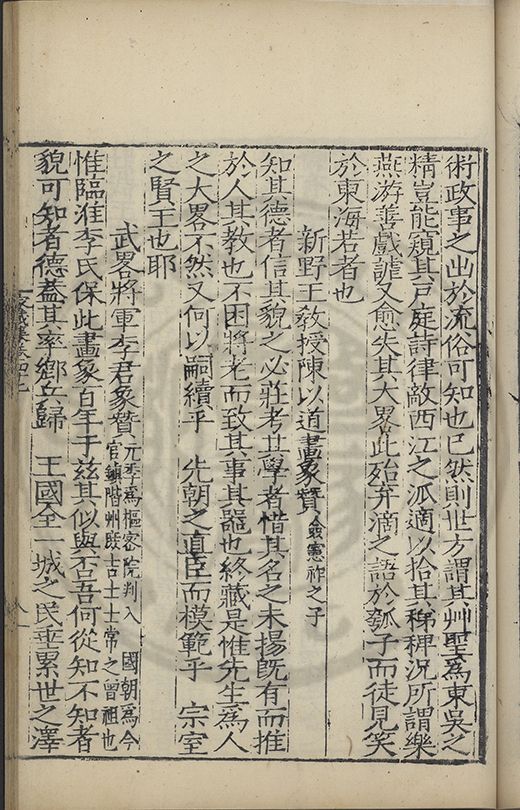 術政事之出於流俗可知也已然則世方謂其艸聖爲東吳之
精豈能窺其戶庭詩律敵西江之派適以拾其稊稗況所謂樂
燕游善戲謔又愈失其大畧此殆弃滴之語於瓠子而徒見笑
於東海若者也
新野王教授陳以道畫象贊 僉憲祚之子
知其德者信其貌之必莊考其學者惜其名之未揚旣有而推
於人其教也不困將老而致其事其噐也終藏是惟先生爲人
之大畧不然又何以嗣續乎 先朝之直臣而模範乎 宗室
之賢王也耶
武畧將軍李君象贊 元季爲樞密院判入 國朝爲今
官鎭階州殁吉土士常之曾祖也
惟臨淮李氏保此畫象百年于茲其似與否吾何從知不知者
貌可知者德蓋其率鄉兵歸 王國全一城之民垂累世之澤